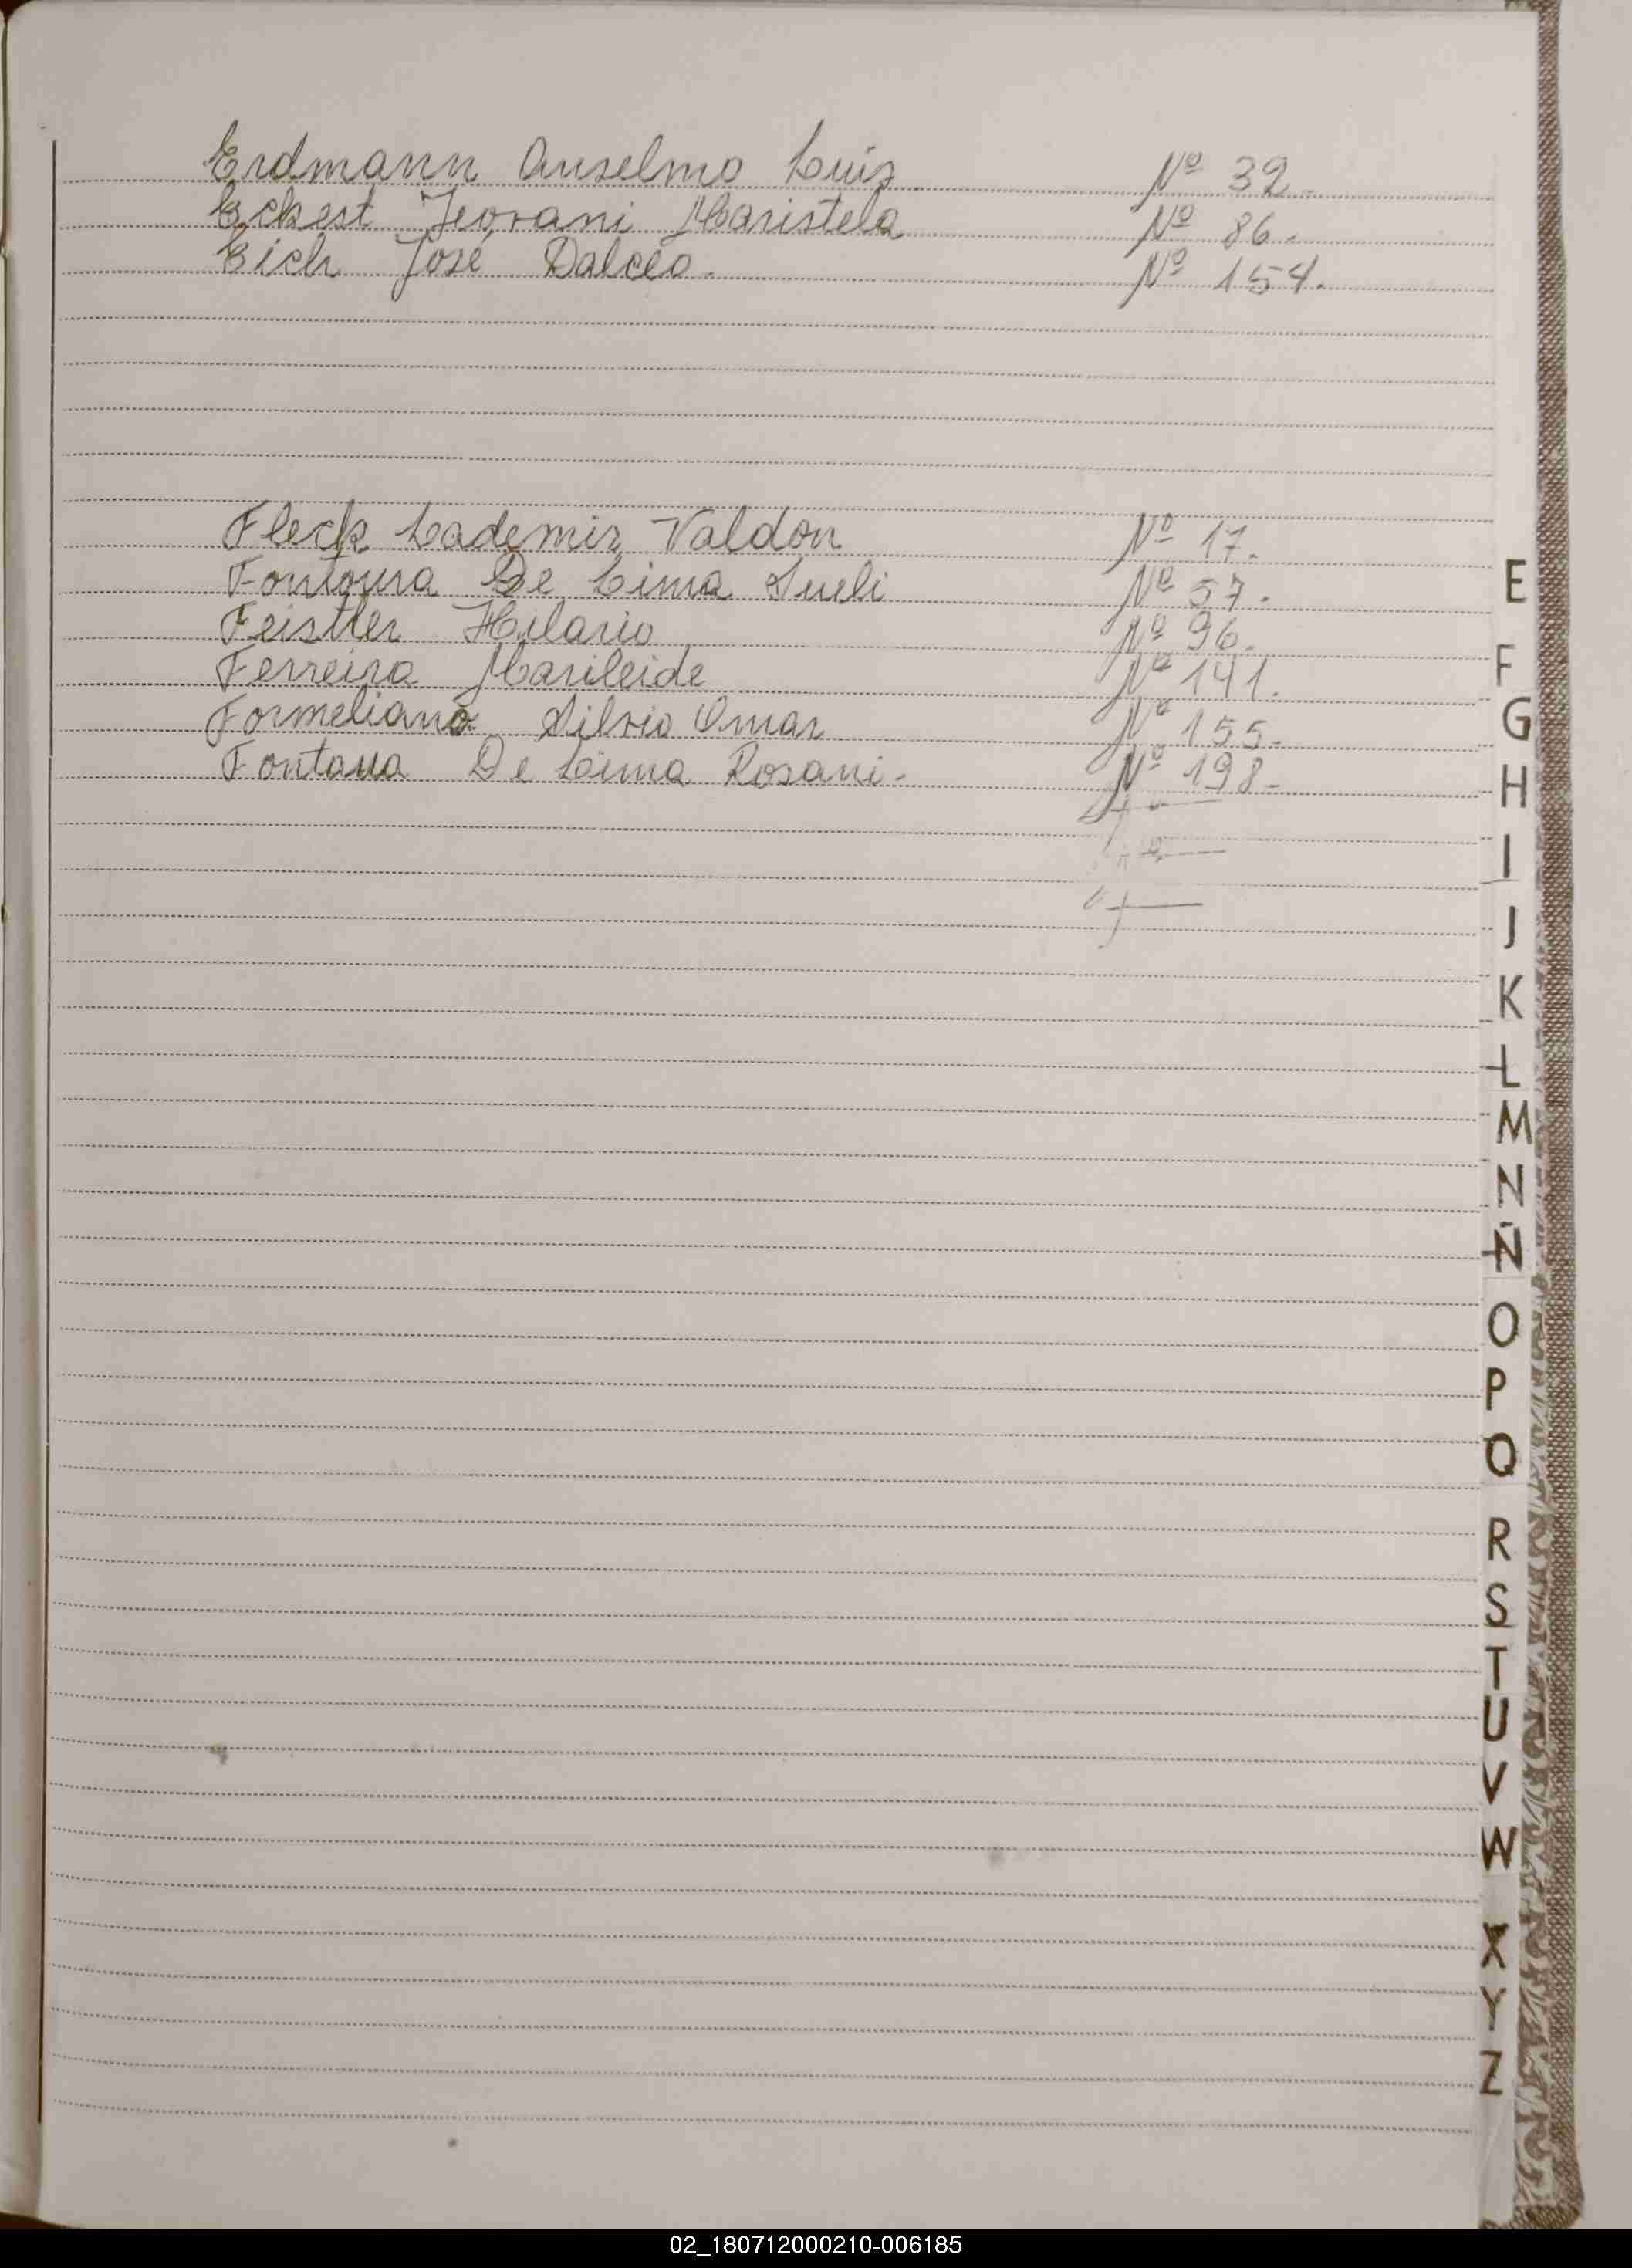 Erdmann Anselmo Luiz Nº 32.
Eckest Jeovani Maristela Nº 86.
Eich José Dalcéo. Nº 154.
Fleck Lademir Valdon Nº 17.
Fontoura De Lima Sueli Nº 57.
Feistler Hilario Nº 96.
Ferreira Marileide Nº 141.
Formeliano Silvio Omar Nº 155.
Fontana De Lima Rosani. Nº 198.
E
F
G
H
I
J
K
L
M
N
Ñ
O
P
Q
R
S
T
U
V
W
X
Y
Z
02_180712000210-006185